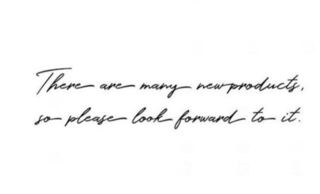 There are many new products,
so please look forward to it.